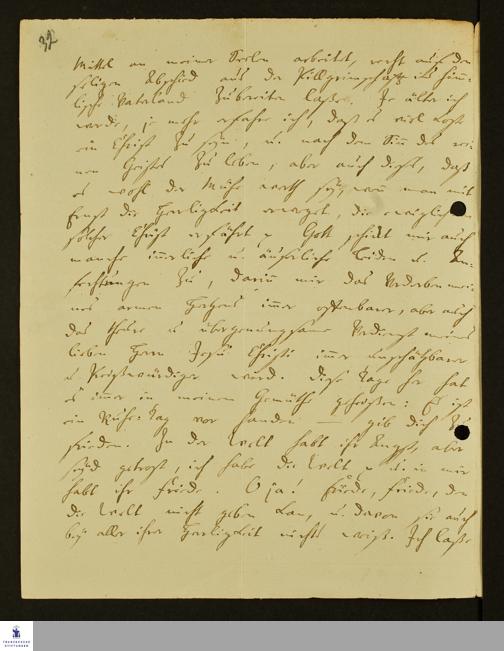 32
Mittel an meiner Seelen arbeitet, recht auf den
seligen Abschied aus der Pillgrimschafft ins himm-
lische Vaterland zubereiten laße. Je älter ich
werde, je mehr erfahre ich, daß es viel kost
ein Christ zu seyn, u. nach dem Sinn des rei-
nen Geistes zu leben; aber auch dieß, daß
es wohl der Mühe werth sey, wenn man mit
Ernst die Herrligkeit erweget, die ewiglich ein
solcher Christ erfährt. Gott schickt mir auch
manche innerliche u. äußerliche Leiden u. An-
fechtungen zu, darin mir das Verderben mei-
nes armen Hertzens immer offenbarer, aber auch
das theure u. übergenugsame Verdienst meines
lieben Herrn Jesu Christi immer unschätzbarer
u. Preißwürdiger wird. Diese Tage her hat
es immer in meinem Gemüthe geheißen: Es ist
ein Ruhe-Tag vor handen — gib dich zu
frieden. In der Welt habt ihr Angst, aber
seyd getrost, ich habe die Welt p. it. in mir
habt ihr Friede. O ja! Friede, Friede, den
die Welt nicht geben kan, u. davon sie auch
bey aller ihrer Herrligkeit nichts weiß. Ich laße
FRANCKESCHE STIFTUNGEN